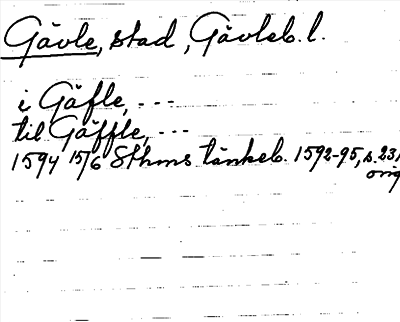 Gävle, stad, Gävleb. l.
i Gäfle, ---
til Gäffle, ---
1594 15/6 Sthms tänkeb. 1592-95, s. 231
orig